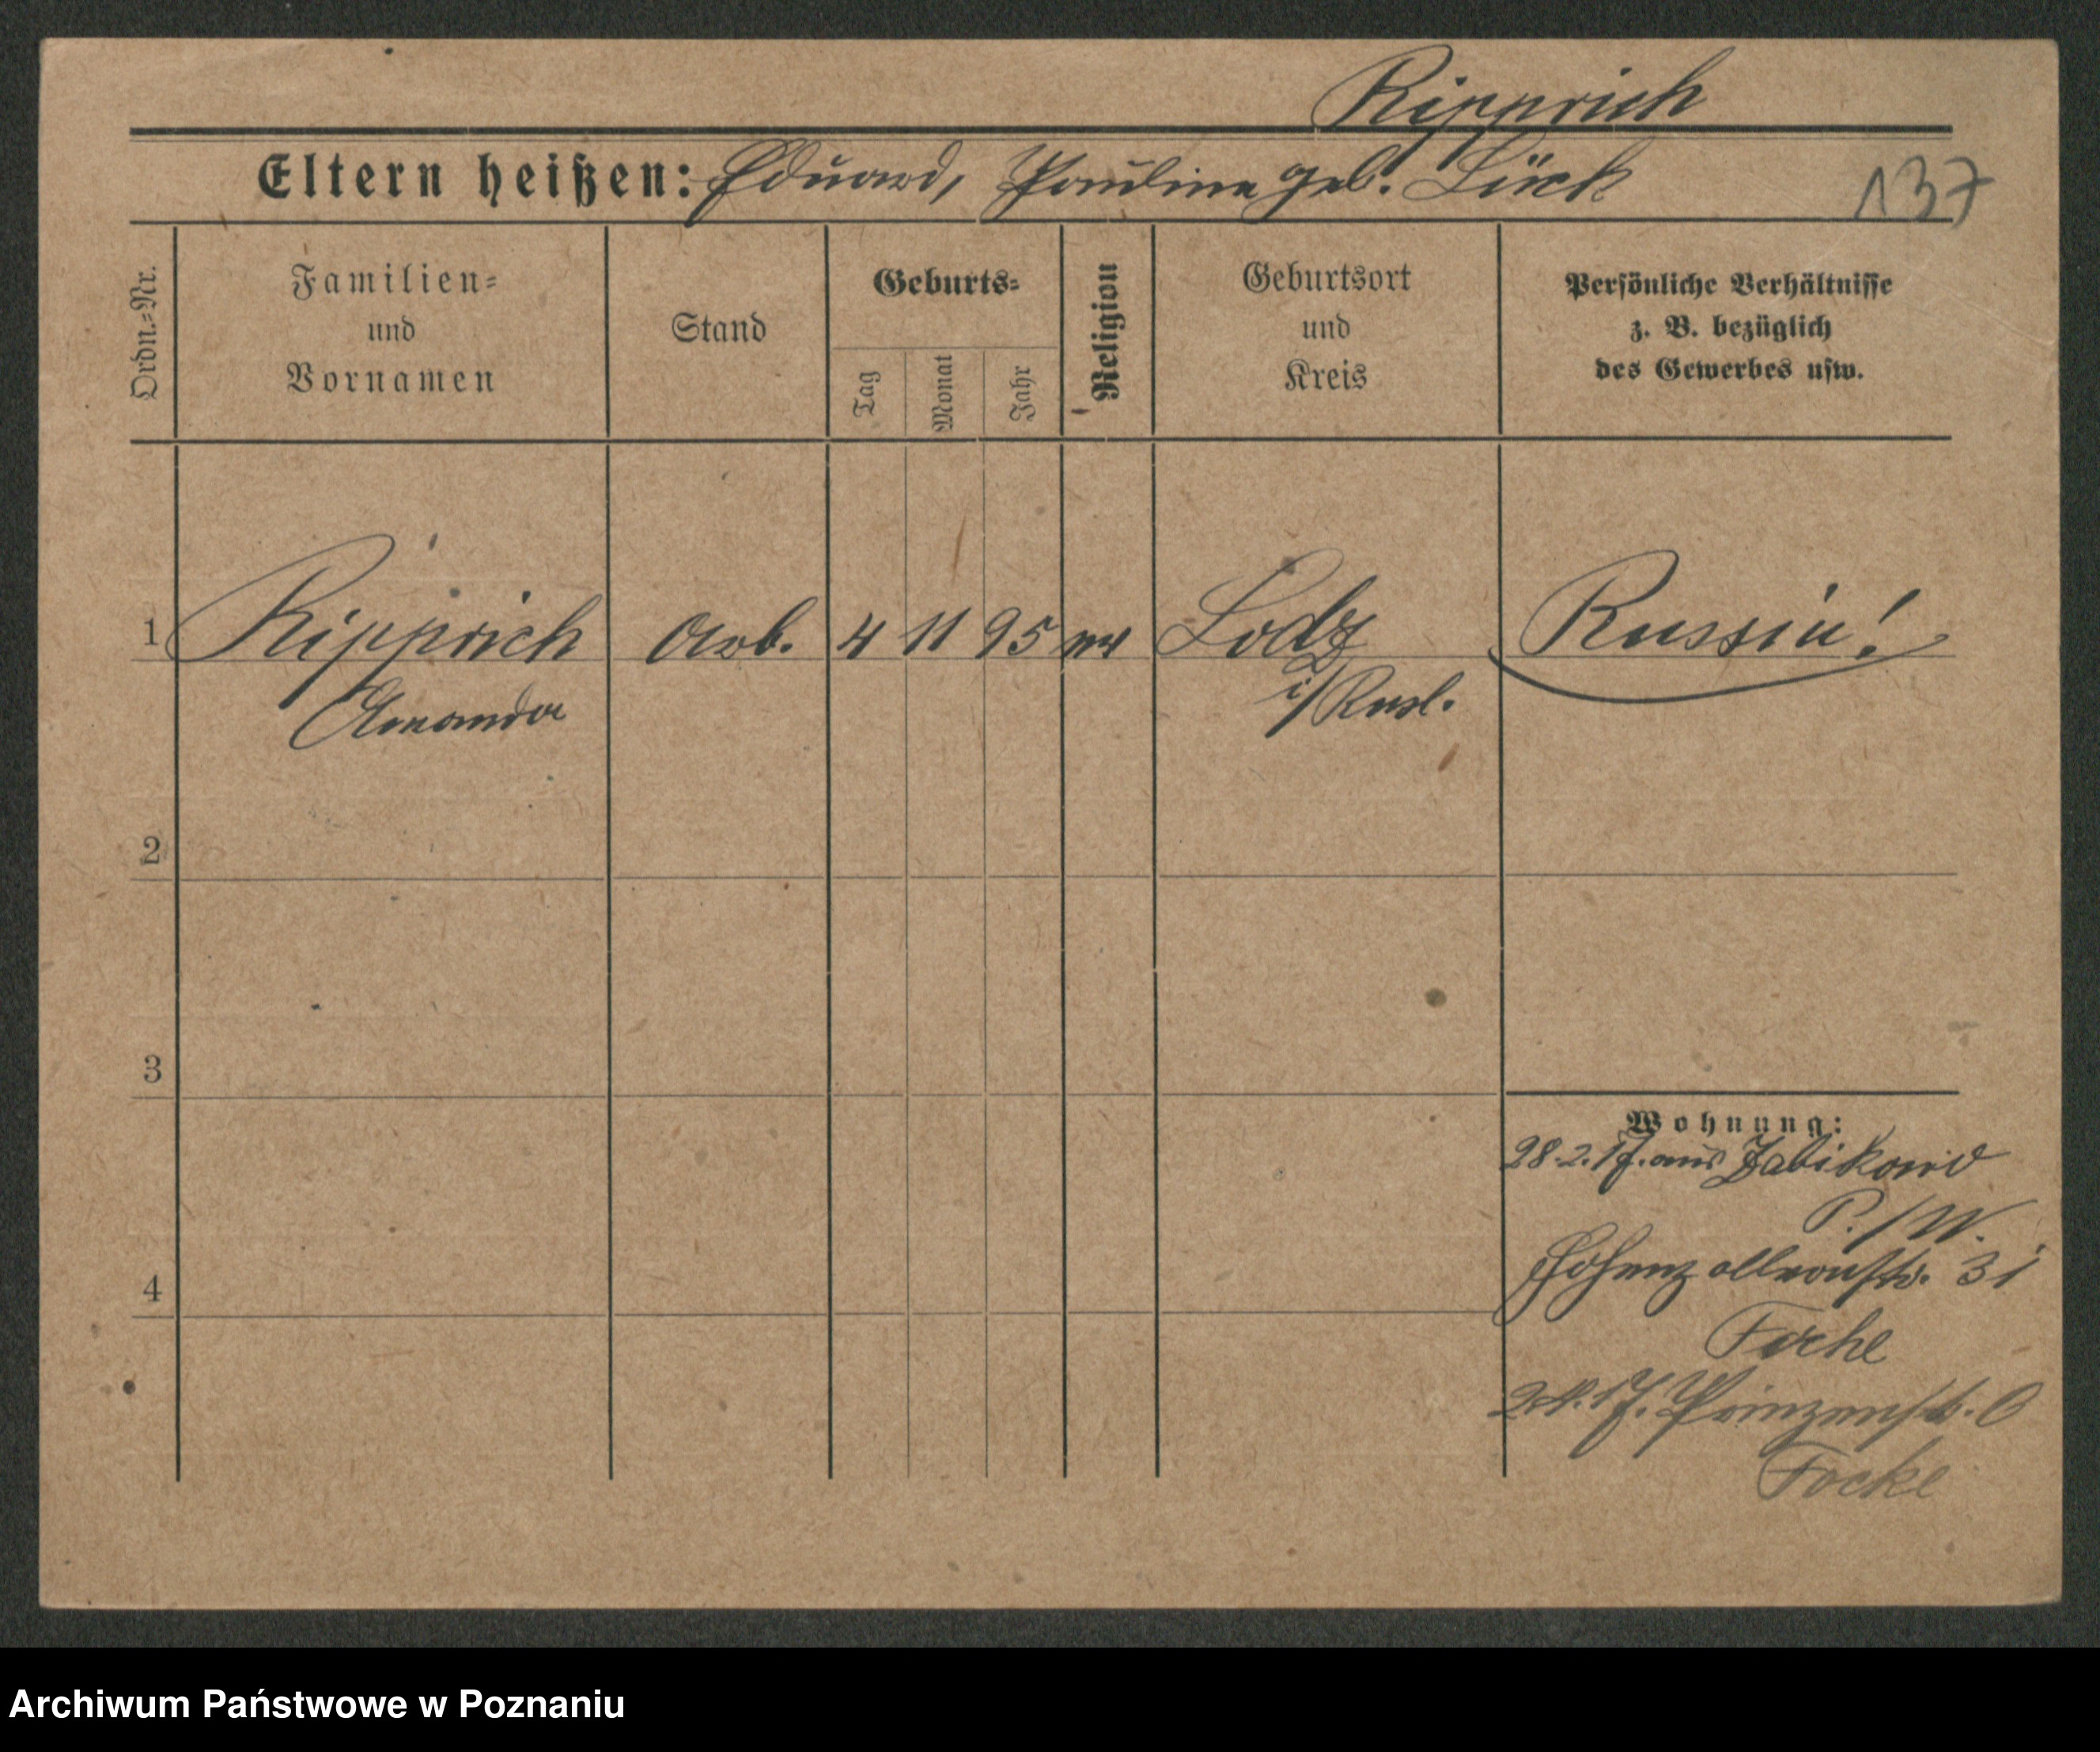 Ripprich
Eltern heißen: Eduard, Pauline geb. Lück
137
Ordn.=Nr.
Familien=
und
Vornamen
Stand
Geburts=
Tag
Monat
Jahr
Religion
Geburtsort
und
Kreis
Persönliche Verhältnisse
z. B. bezüglich
des Gewerbes usw.
1 Ripprich Arb. 4 11 95 ev Lodz Russin!
Amanda i/Rusl.
2
3
4
Wohnung:
28.2.17. aus Zabikowo
P./W.
Hohenzollernstr. 31
Focke
17. Prinzenstr.
Focke
Archiwum Państwowe w Poznaniu